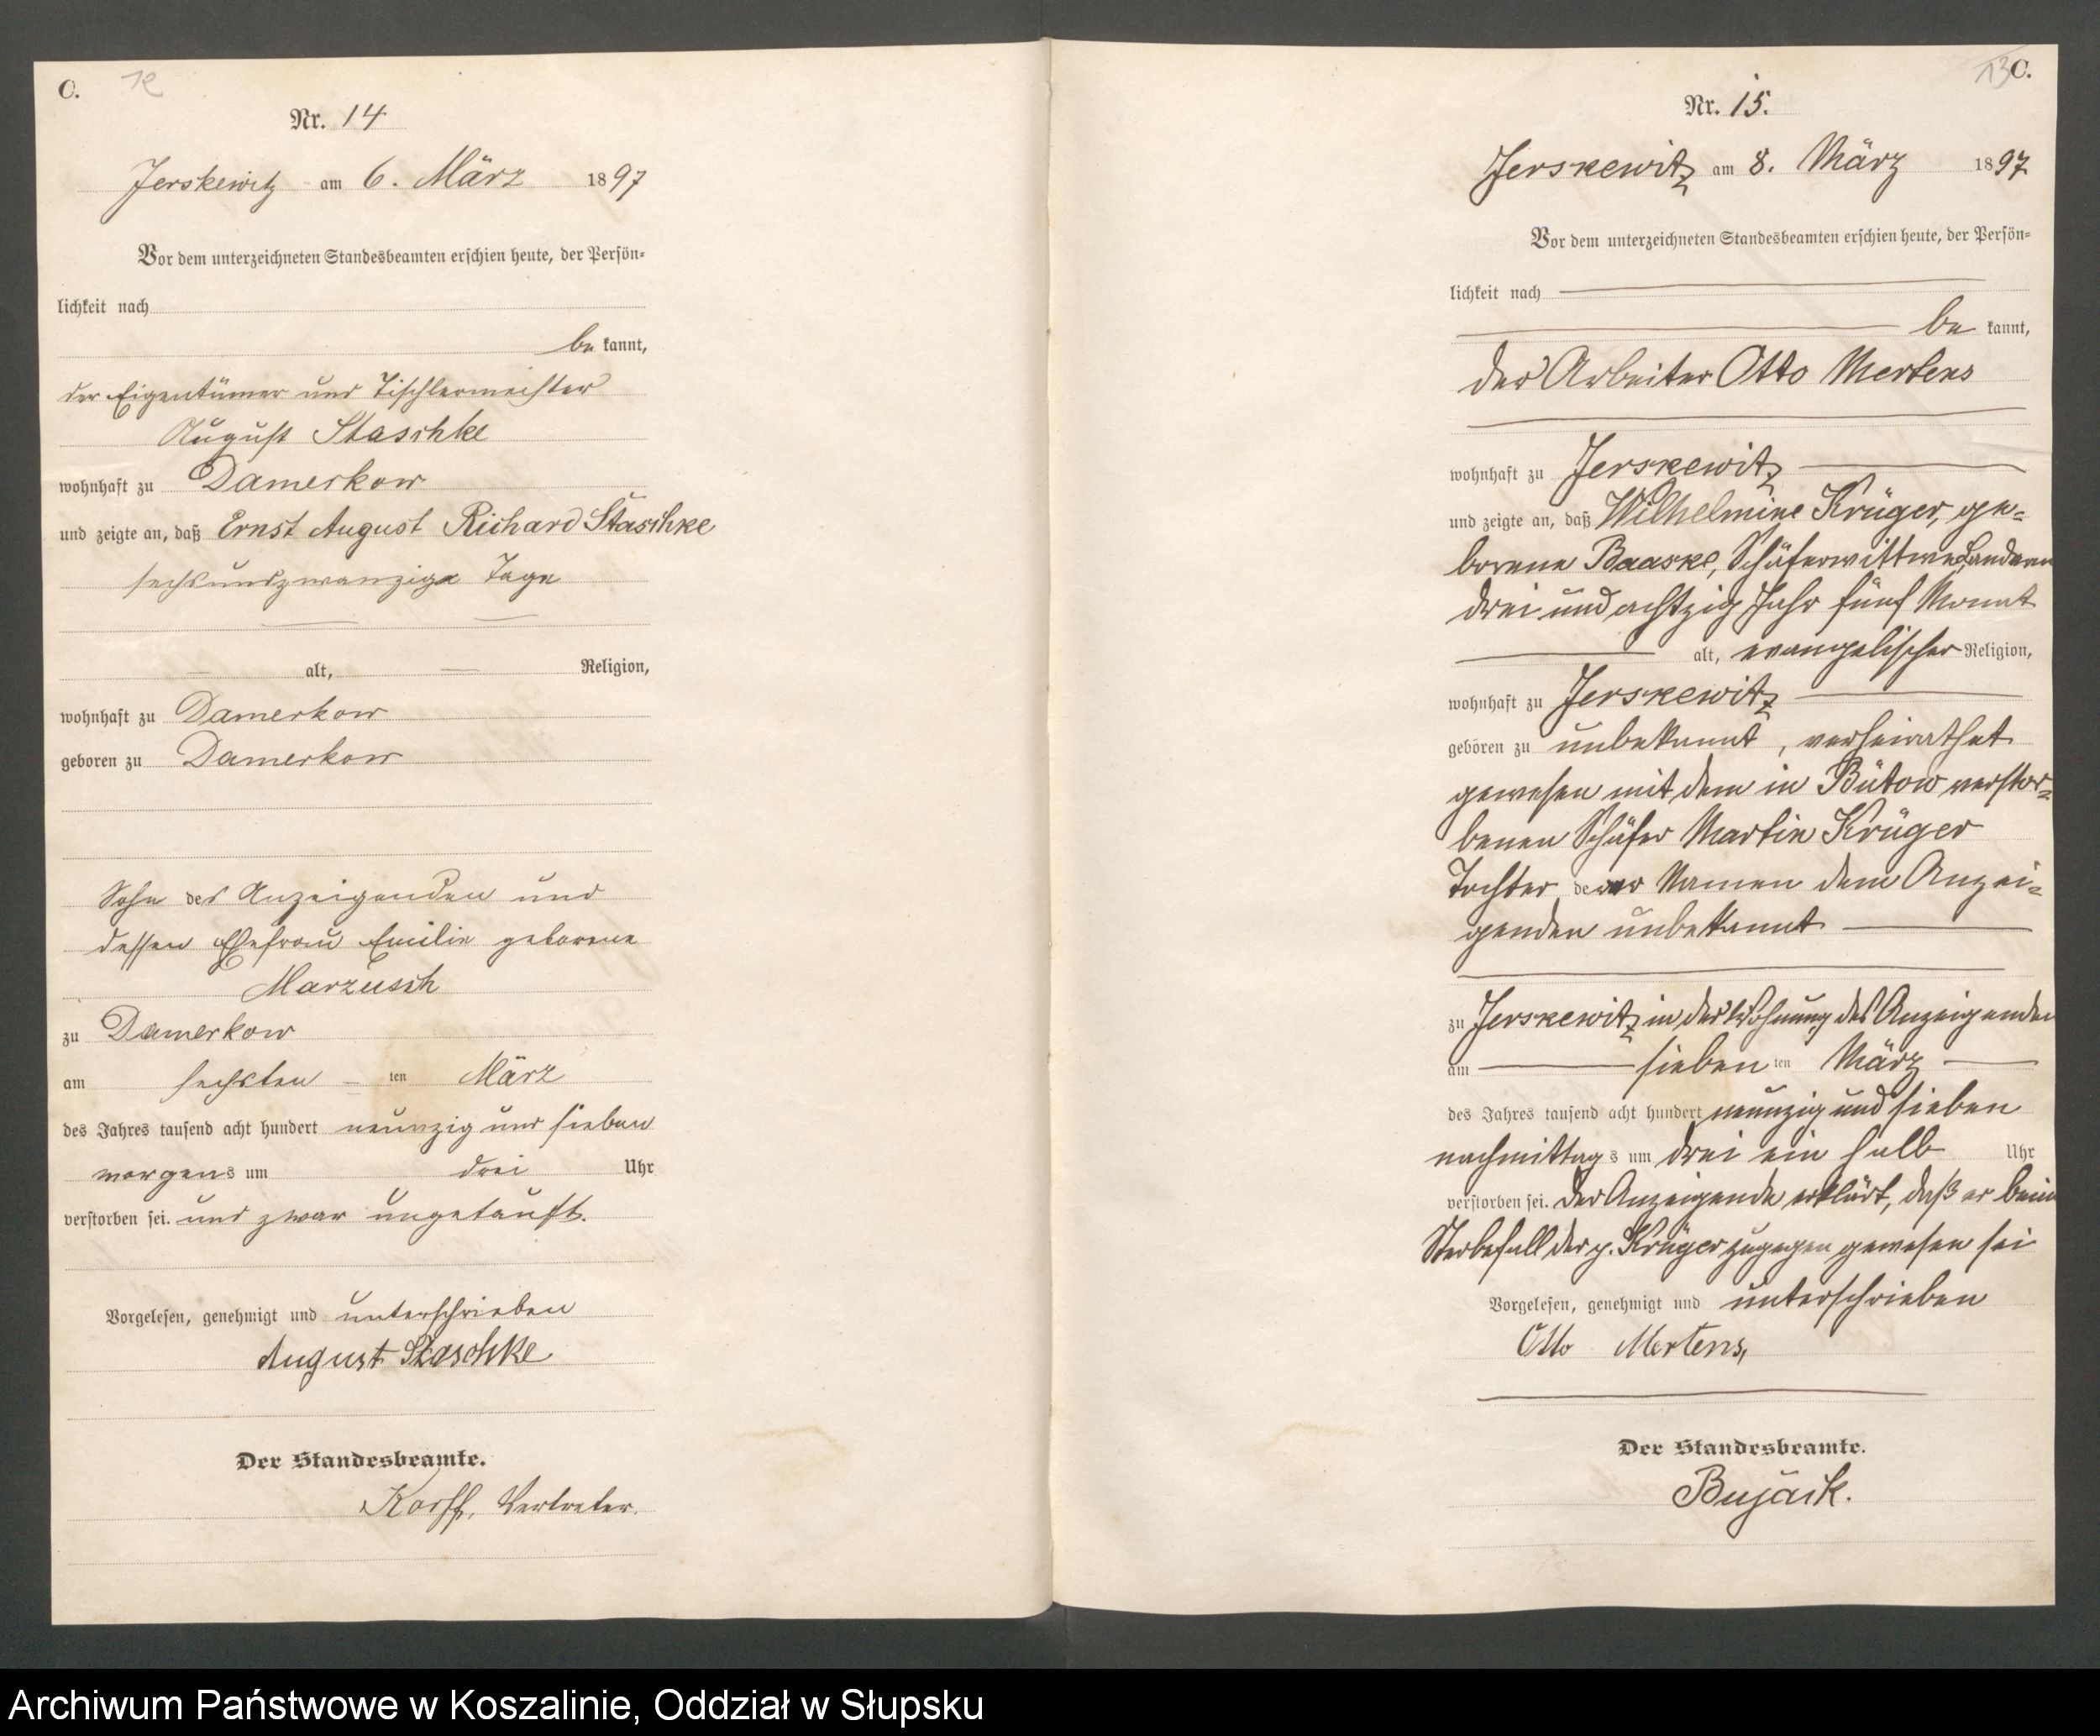 C.
12
Nr. 14
Jerskewitz am 6. März 1897
Vor dem unterzeichneten Standesbeamten erschien heute, der Persön-
lichkeit nach
be kannt,
der Eigentümer und Tischlermeister
August Staschke
wohnhaft zu Damerkow
und zeigte an, daß Ernst August Richard Staschke
sechsundzwanzig Tage
alt, Religion,
wohnhaft zu Damerkow
geboren zu Damerkow
Sohn des Anzeigenden und
dessen Ehefrau Emilie geborene
Marzusch
zu Damerkow
am sechsten ten März
des Jahres tausend acht hundert neunzig und sieben
morgens um drei Uhr
verstorben sei. und zwar ungetauft.
Vorgelesen, genehmigt und unterschrieben
August Staschke
Der Standesbeamte.
Korff, Vertreter.
13
C.
Nr. 15.
Jerskewitz am 8. März 1897
Vor dem unterzeichneten Standesbeamten erschien heute, der Persön-
lichkeit nach
be kannt,
der Arbeiter Otto Mertens
wohnhaft zu Jerskewitz
und zeigte an, daß Wilhelmine Krüger, ge-
borene Baaske, Schäferwittwe,
drei und achtzig Jahr fünf Monat
alt, evangelischer Religion,
wohnhaft zu Jerskewitz
geboren zu unbekannt, verheirathet
gewesen mit dem in Bütow verstor-
benen Schäfer Martin Krüger
Tochter, deren Namen dem Anzei-
genden unbekannt
zu Jerskewitz in der Wohnung des Anzeigenden
am sieben ten März
des Jahres tausend acht hundert neunzig und sieben
nachmittags um drei ein halb Uhr
verstorben sei. Der Anzeigende erklärt, daß er beim
Sterbefall der p. Krüger zugegen gewesen sei
Vorgelesen, genehmigt und unterschrieben
Otto Mertens,
Der Standesbeamte.
Bujack.
Archiwum Państwowe w Koszalinie, Oddział w Słupsku